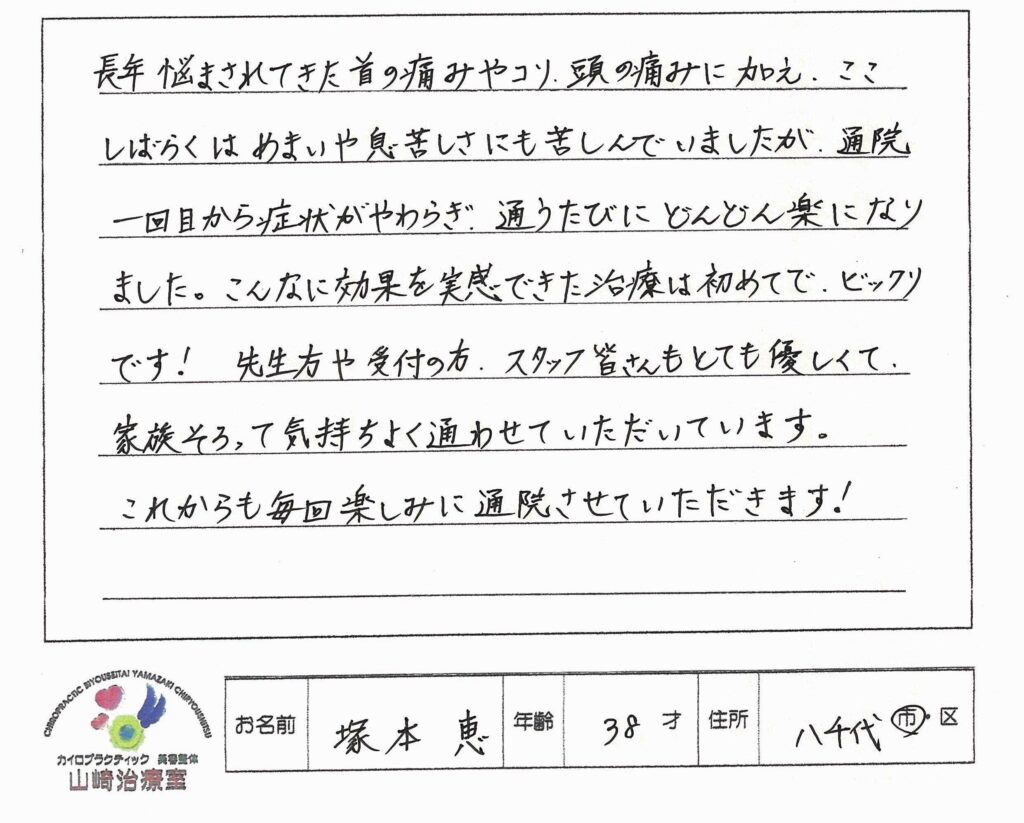 長年悩まされてきた首の痛みやコリ、頭の痛みに加え、ここ
しばらくはめまいや息苦しさにも苦しんでいましたが、通院
一回目から症状がやわらぎ、通うたびにどんどん楽になり
ました。こんなに効果を実感できた治療は初めてで、ビックリ
です! 先生方や受付の方、スタッフ皆さんもとても優しくて、
家族そろって気持ちよく通わせていただいています。
これからも毎回楽しみに通院させていただきます!
CHIROPRACTIC BIYOUSEITAI YAMAZAKI CHIRYOUSHITSU
カイロプラクティック 美容整体
山崎治療室
お名前 塚本 恵 年齢 38 才 住所 八千代 市・区